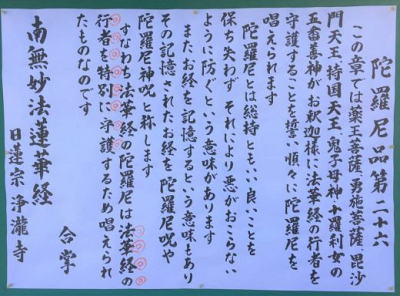 陀羅尼品第二十六
この章では薬王菩薩、勇施菩薩、毘沙
門天王、持国天王、鬼子母神、十羅刹女の
五番善神がお釈迦様に法華経の行者を
守護することを誓い順々に陀羅尼を
唱えられます
陀羅尼とは総持ともいい良いことを
保ち失わず それにより悪がおこらない
ように防ぐという意味があります
またお経を記憶するという意味もあり
その記憶されたお経を陀羅尼呪や
陀羅尼神呪と称します
すなわち法華経の陀羅尼は法華経の
行者を特別に守護するため唱えられ
たものなのです
合掌
南無妙法蓮華経
日蓮宗 浄瀧寺